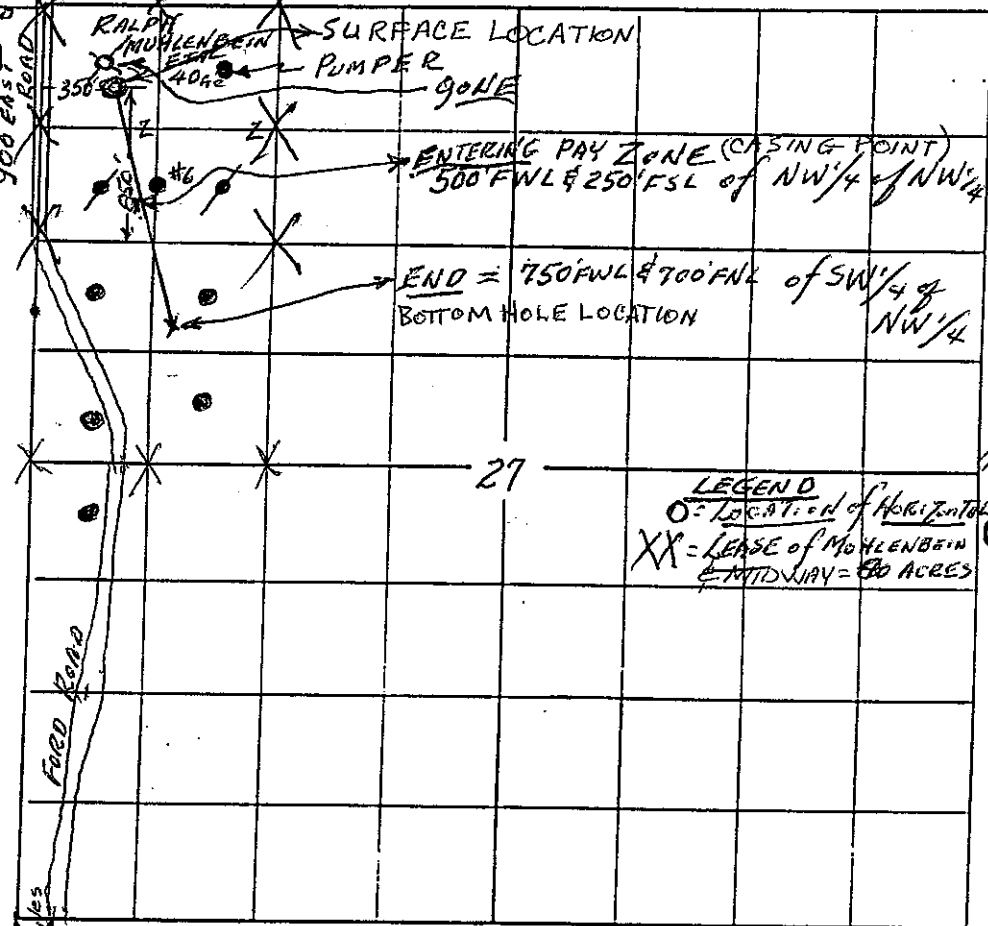 900 EAST
ROAD
RALPH
MUHLENBEIN
ETAL
40 Ac
SURFACE LOCATION
PUMPER
gONE
350'
850'
#6
ENTERING PAY ZONE (CASING POINT)
500' FWL & 250' FSL of NW 1/4 of NW 1/4
END = 750' FWL & 700' FNL of SW 1/4 of
NW 1/4
BOTTOM HOLE LOCATION
27
LEGEND
O = LOCATION of HORIZONTAL
XX = LEASE of MUHLENBEIN
& MIDWAY = 80 ACRES
FORD ROAD